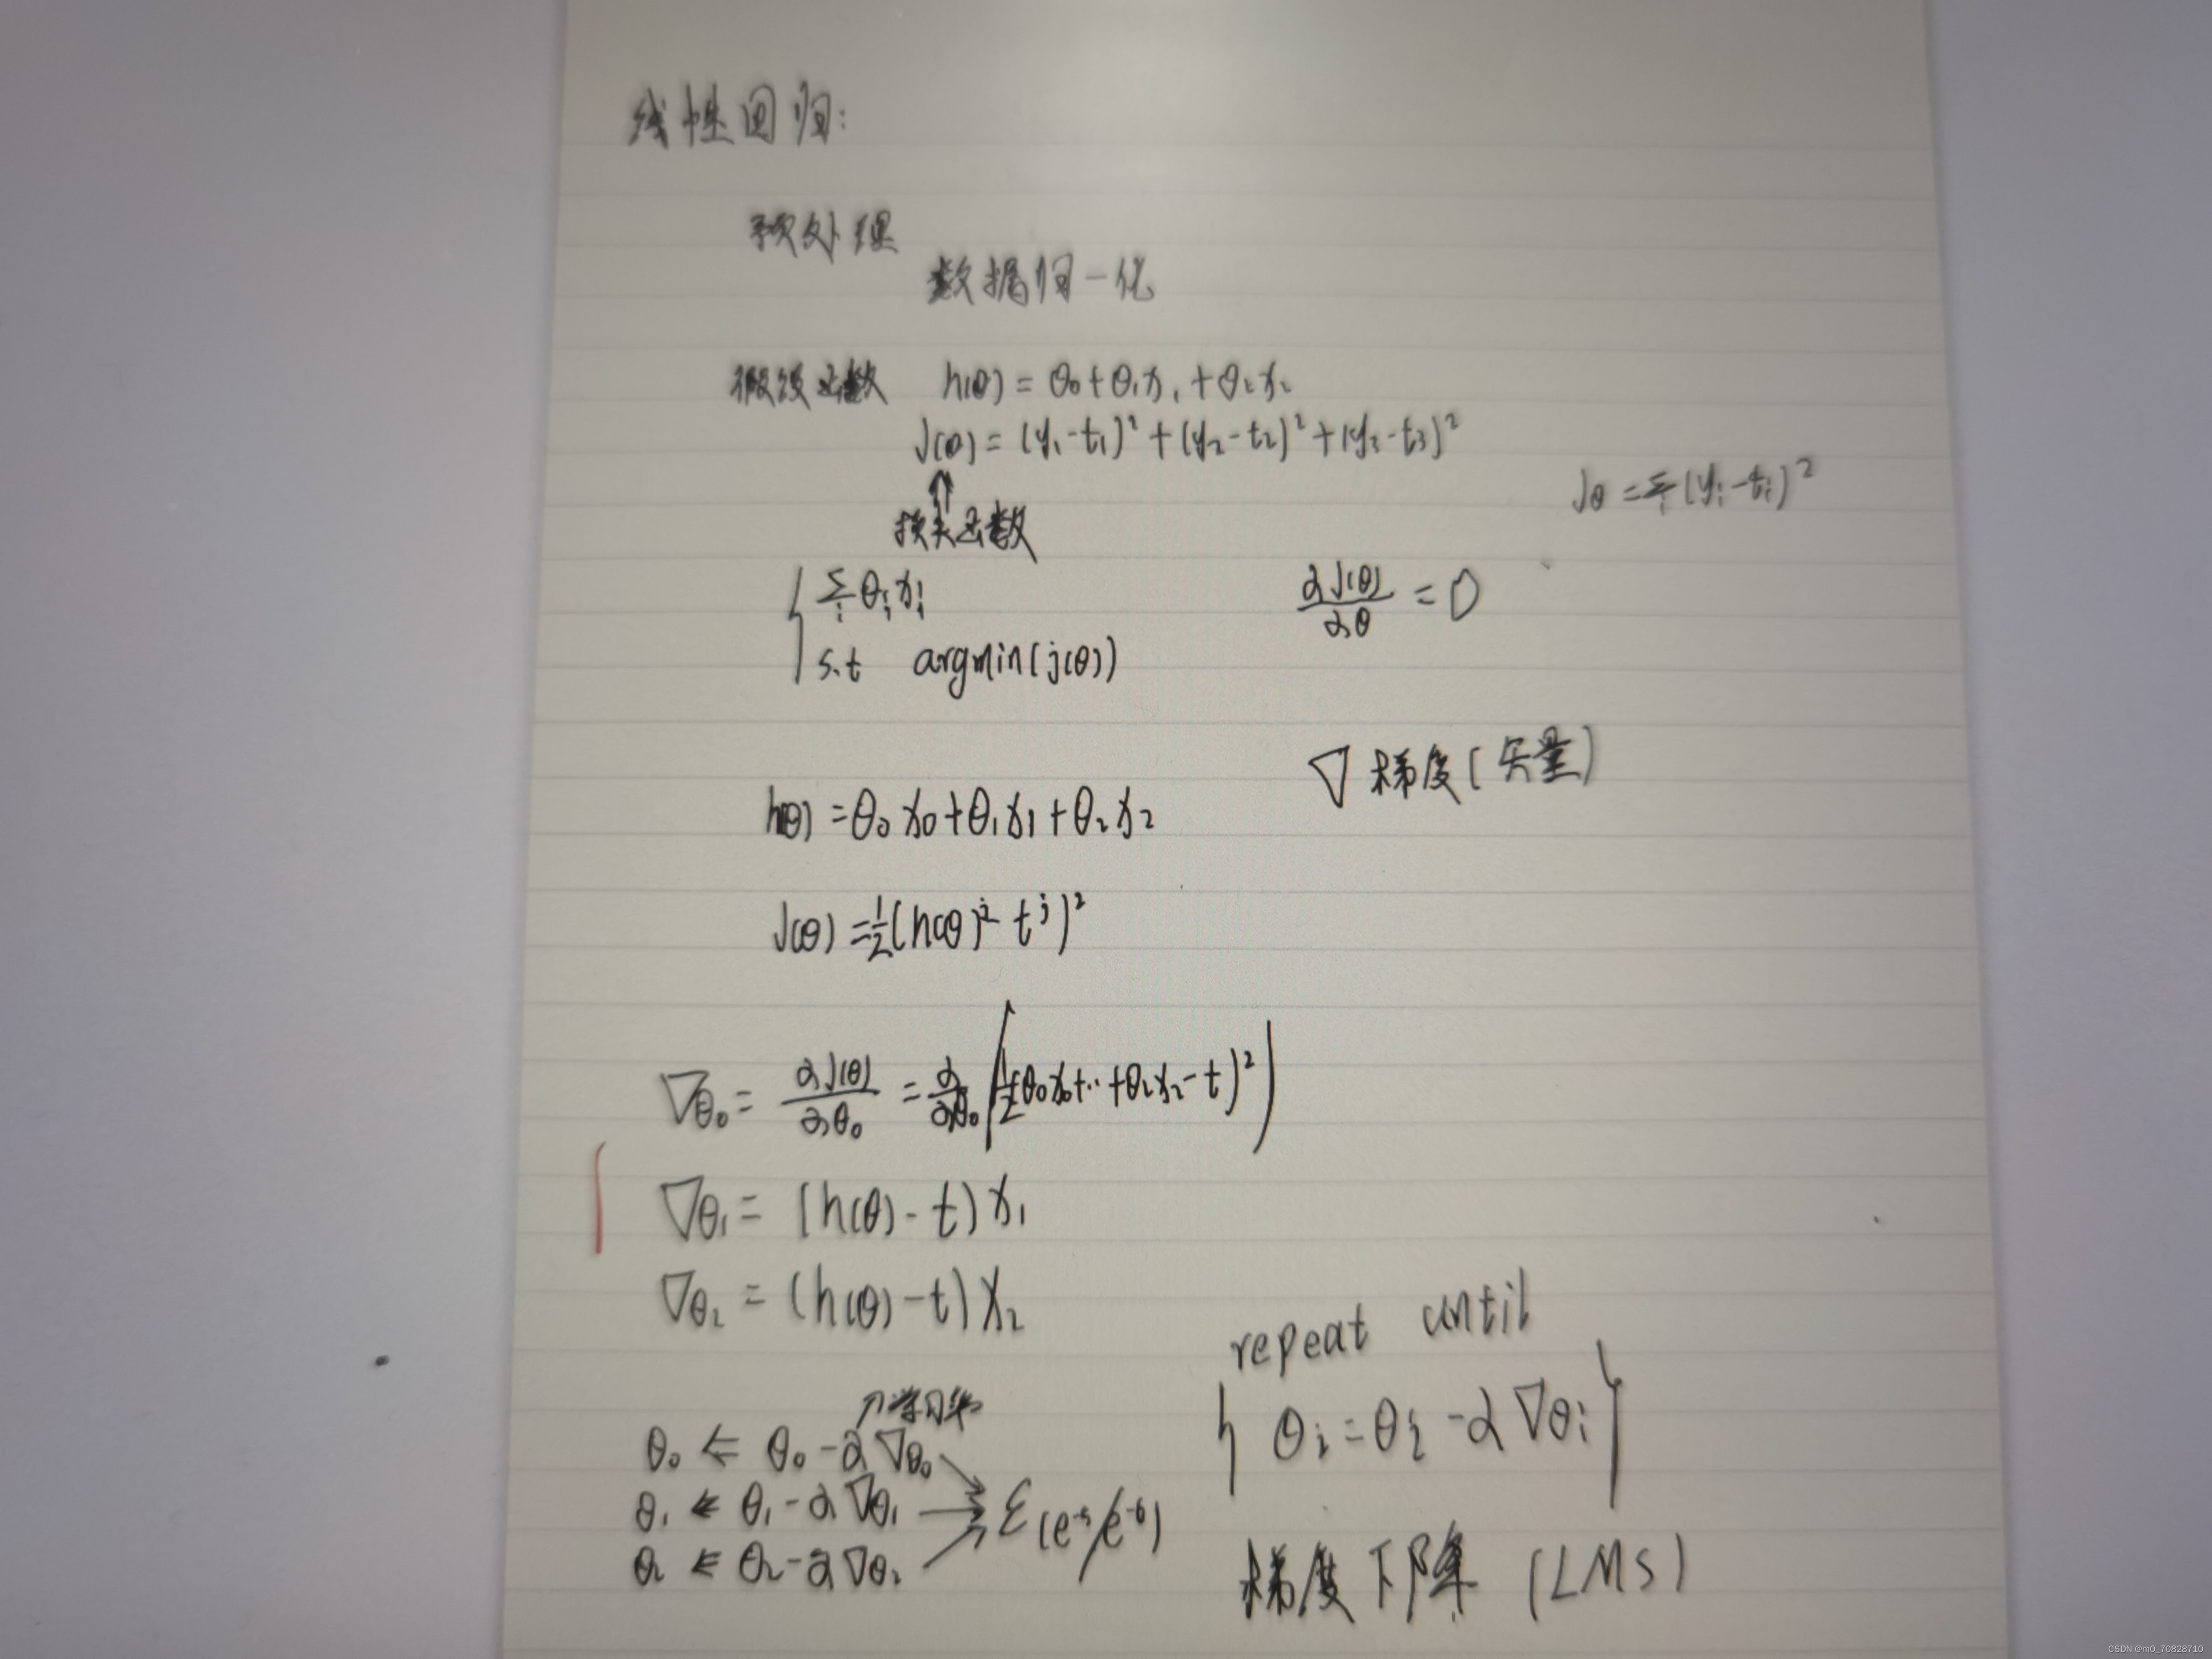 线性回归:
预处理
数据归一化
假设函数 h(θ) = θ₀ + θ₁x₁ + θ₂x₂
J(θ) = (y₁-t₁)² + (y₂-t₂)² + (y₃-t₃)²
Jθ = Σᵢ (yᵢ-tᵢ)²
⇑
损失函数
{ Σᵢ θᵢxᵢ
∂J(θ)/∂θ = 0
s.t argmin(j(θ))
∇ 梯度(矢量)
h(θ) = θ₀x₀ + θ₁x₁ + θ₂x₂
J(θ) = ½(h(θ)ʲ - tʲ)²
∇θ₀ = ∂J(θ)/∂θ₀ = ∂/∂θ₀ (½(θ₀x₀+··+θ₂x₂-t)²)
∇θ₁ = (h(θ)-t)x₁
∇θ₂ = (h(θ)-t)x₂
repeat until
{ θᵢ = θᵢ - α∇θᵢ }
↗学习率
θ₀ ⇐ θ₀ - α∇θ₀
θ₁ ⇐ θ₁ - α∇θ₁ → ε(e⁻⁵/e⁻⁶)
θ₂ ⇐ θ₂ - α∇θ₂
梯度下降 (LMS)
CSDN @m0_70828710